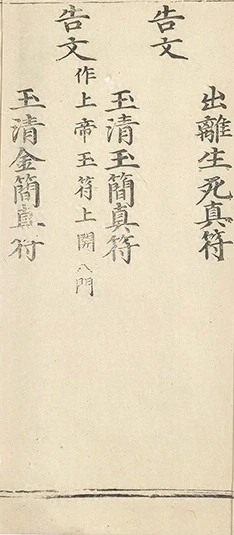 出離生死真符
告文
玉清玉簡真符
作上帝玉符上開八門
告文
玉清金簡真符